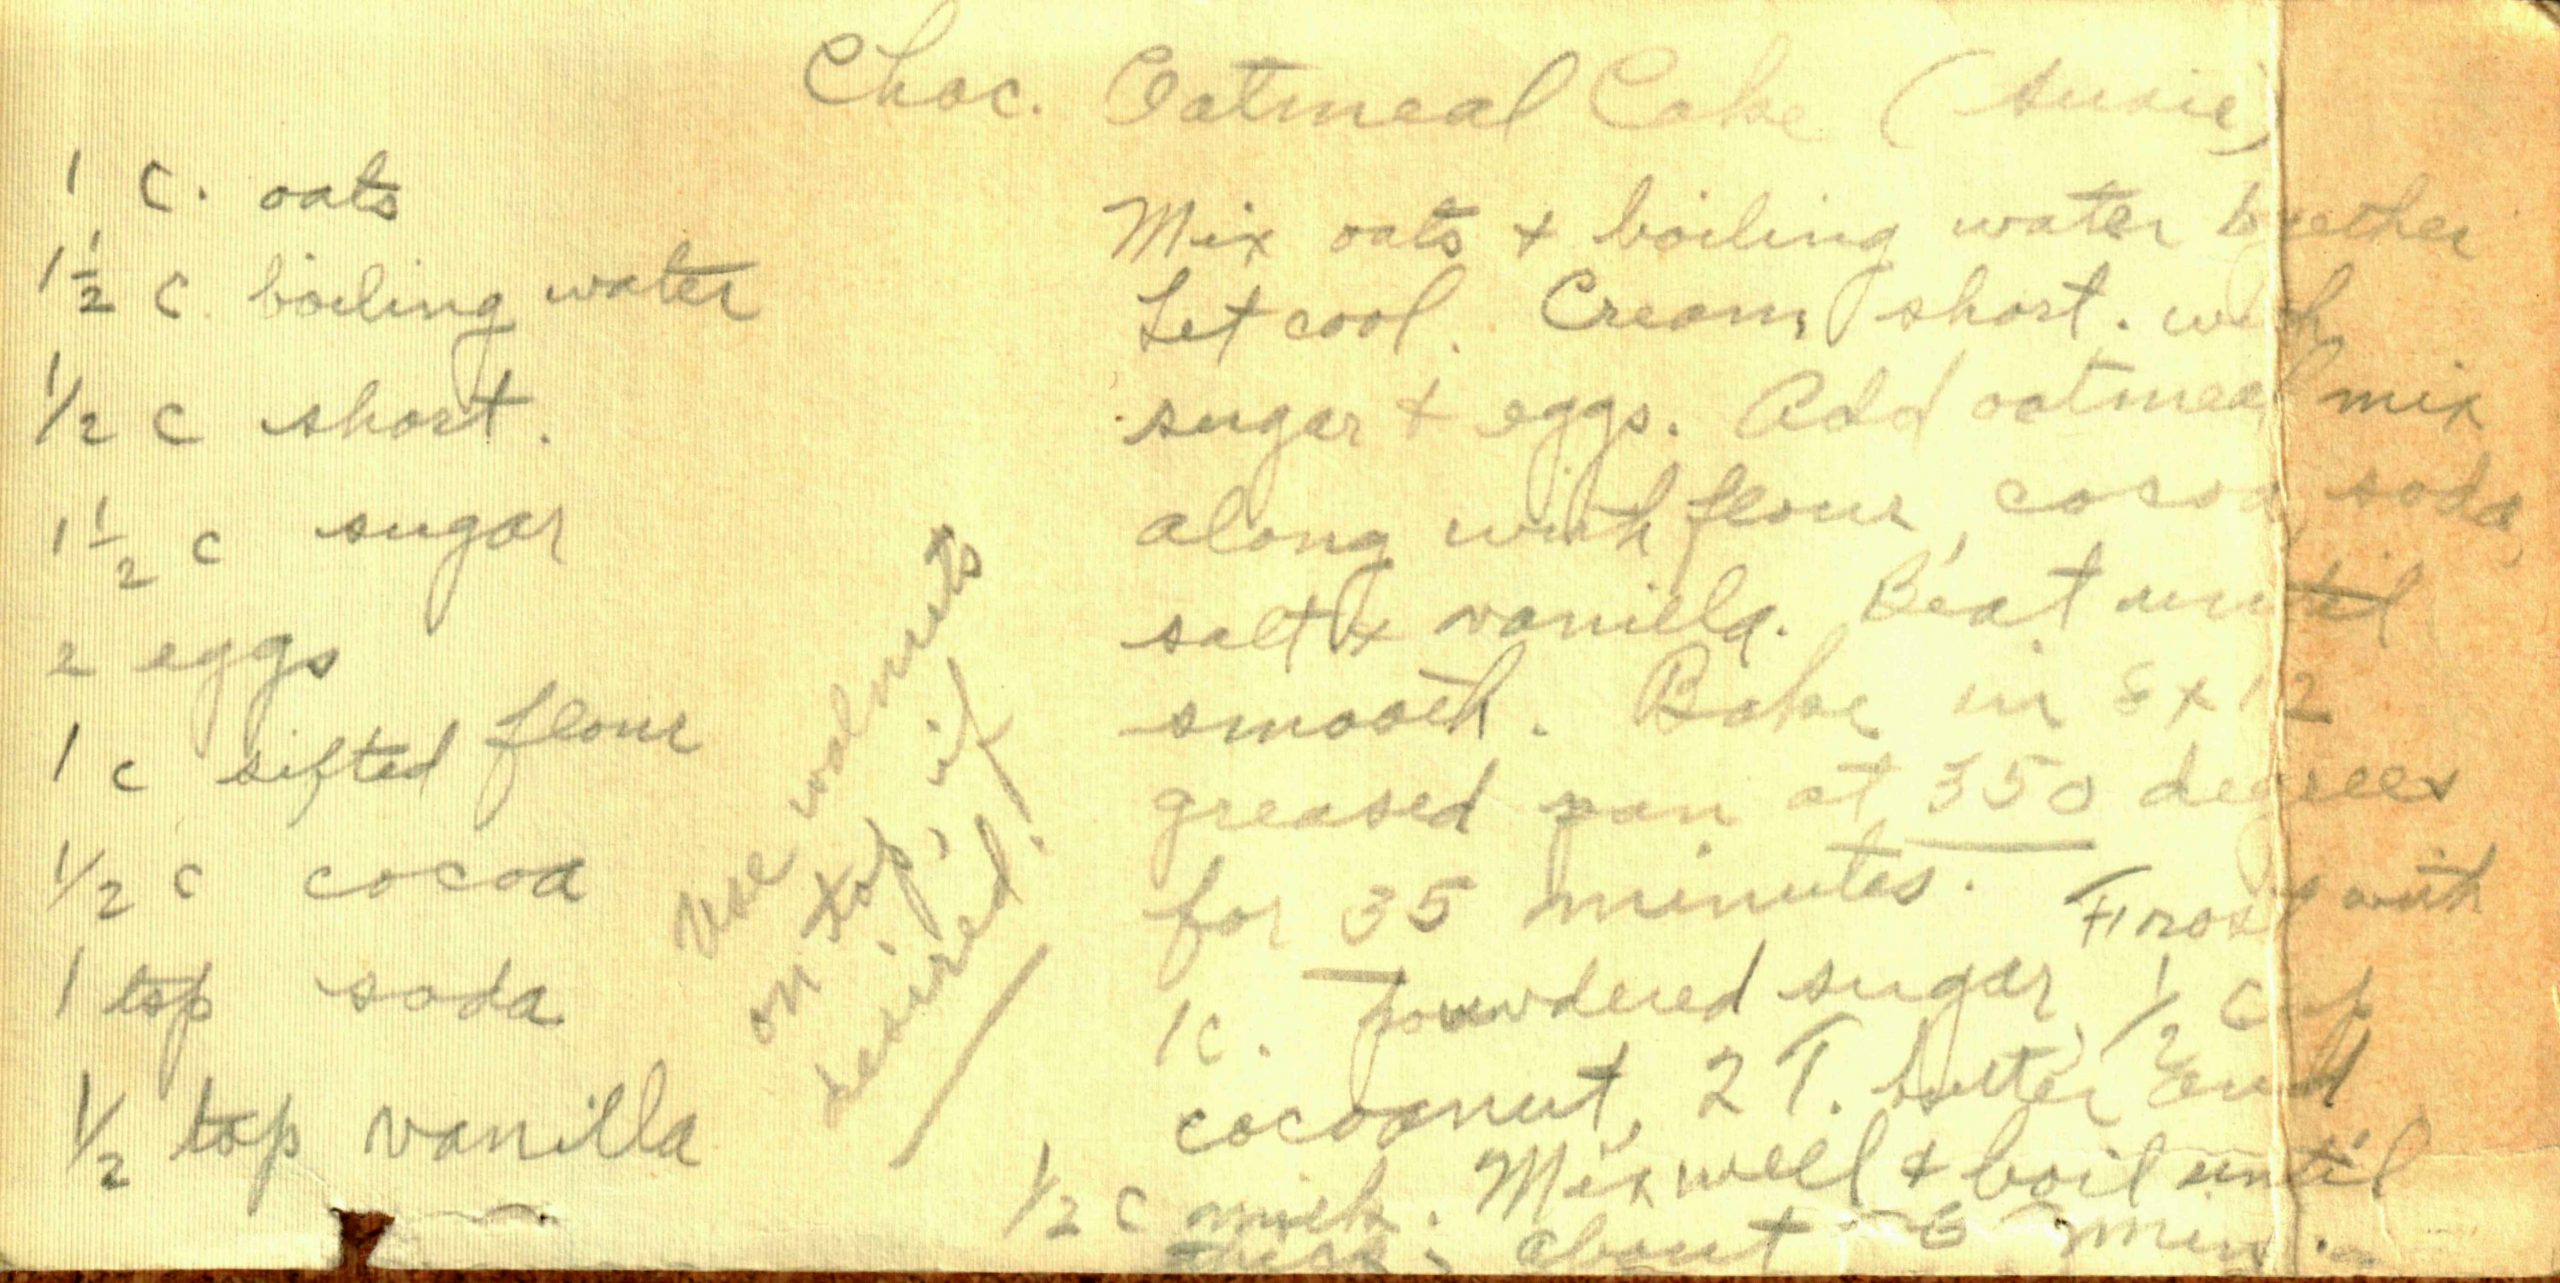 Choc. Oatmeal Cake (Susie)
1 c. oats
1 1/2 c boiling water
1/2 c short.
1 1/2 c sugar
2 eggs
1 c sifted flour
1/2 c cocoa
1 tsp soda
1/2 tsp vanilla
Use walnuts
on top, if
desired.
Mix oats + boiling water together
Let cool. Cream short. with
sugar + eggs. Add oatmeal mix
along with flour, cocoa, soda,
salt + vanilla. Beat until
smooth. Bake in 8x12
greased pan at 350 degrees
for 35 minutes. Frost with
1c. powdered sugar, 1/2 cup
cocoanut, 2 T. butter and
1/2 c milk. Mix well + boil until
thick, about 6 min.